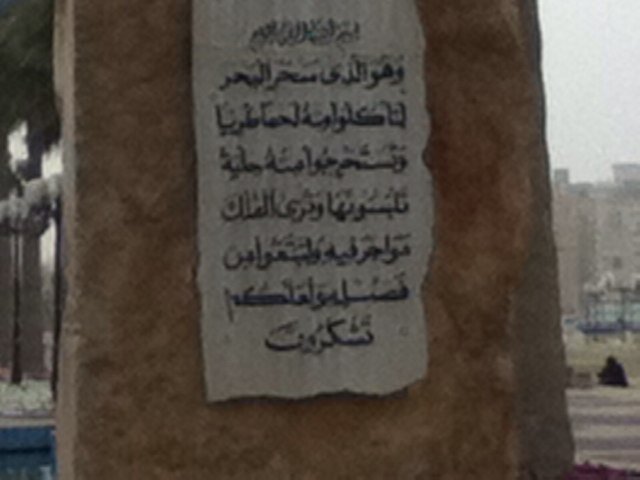 بسم الله الرحمن الرحيم
وهو الذى سخر البحر
لتأكلوا منه لحما طريا
وتستخرجوا منه حلية
تلبسونها وترى الفلك
مواخر فيه ولتبتغوا من
فضله ولعلكم
تشكرون